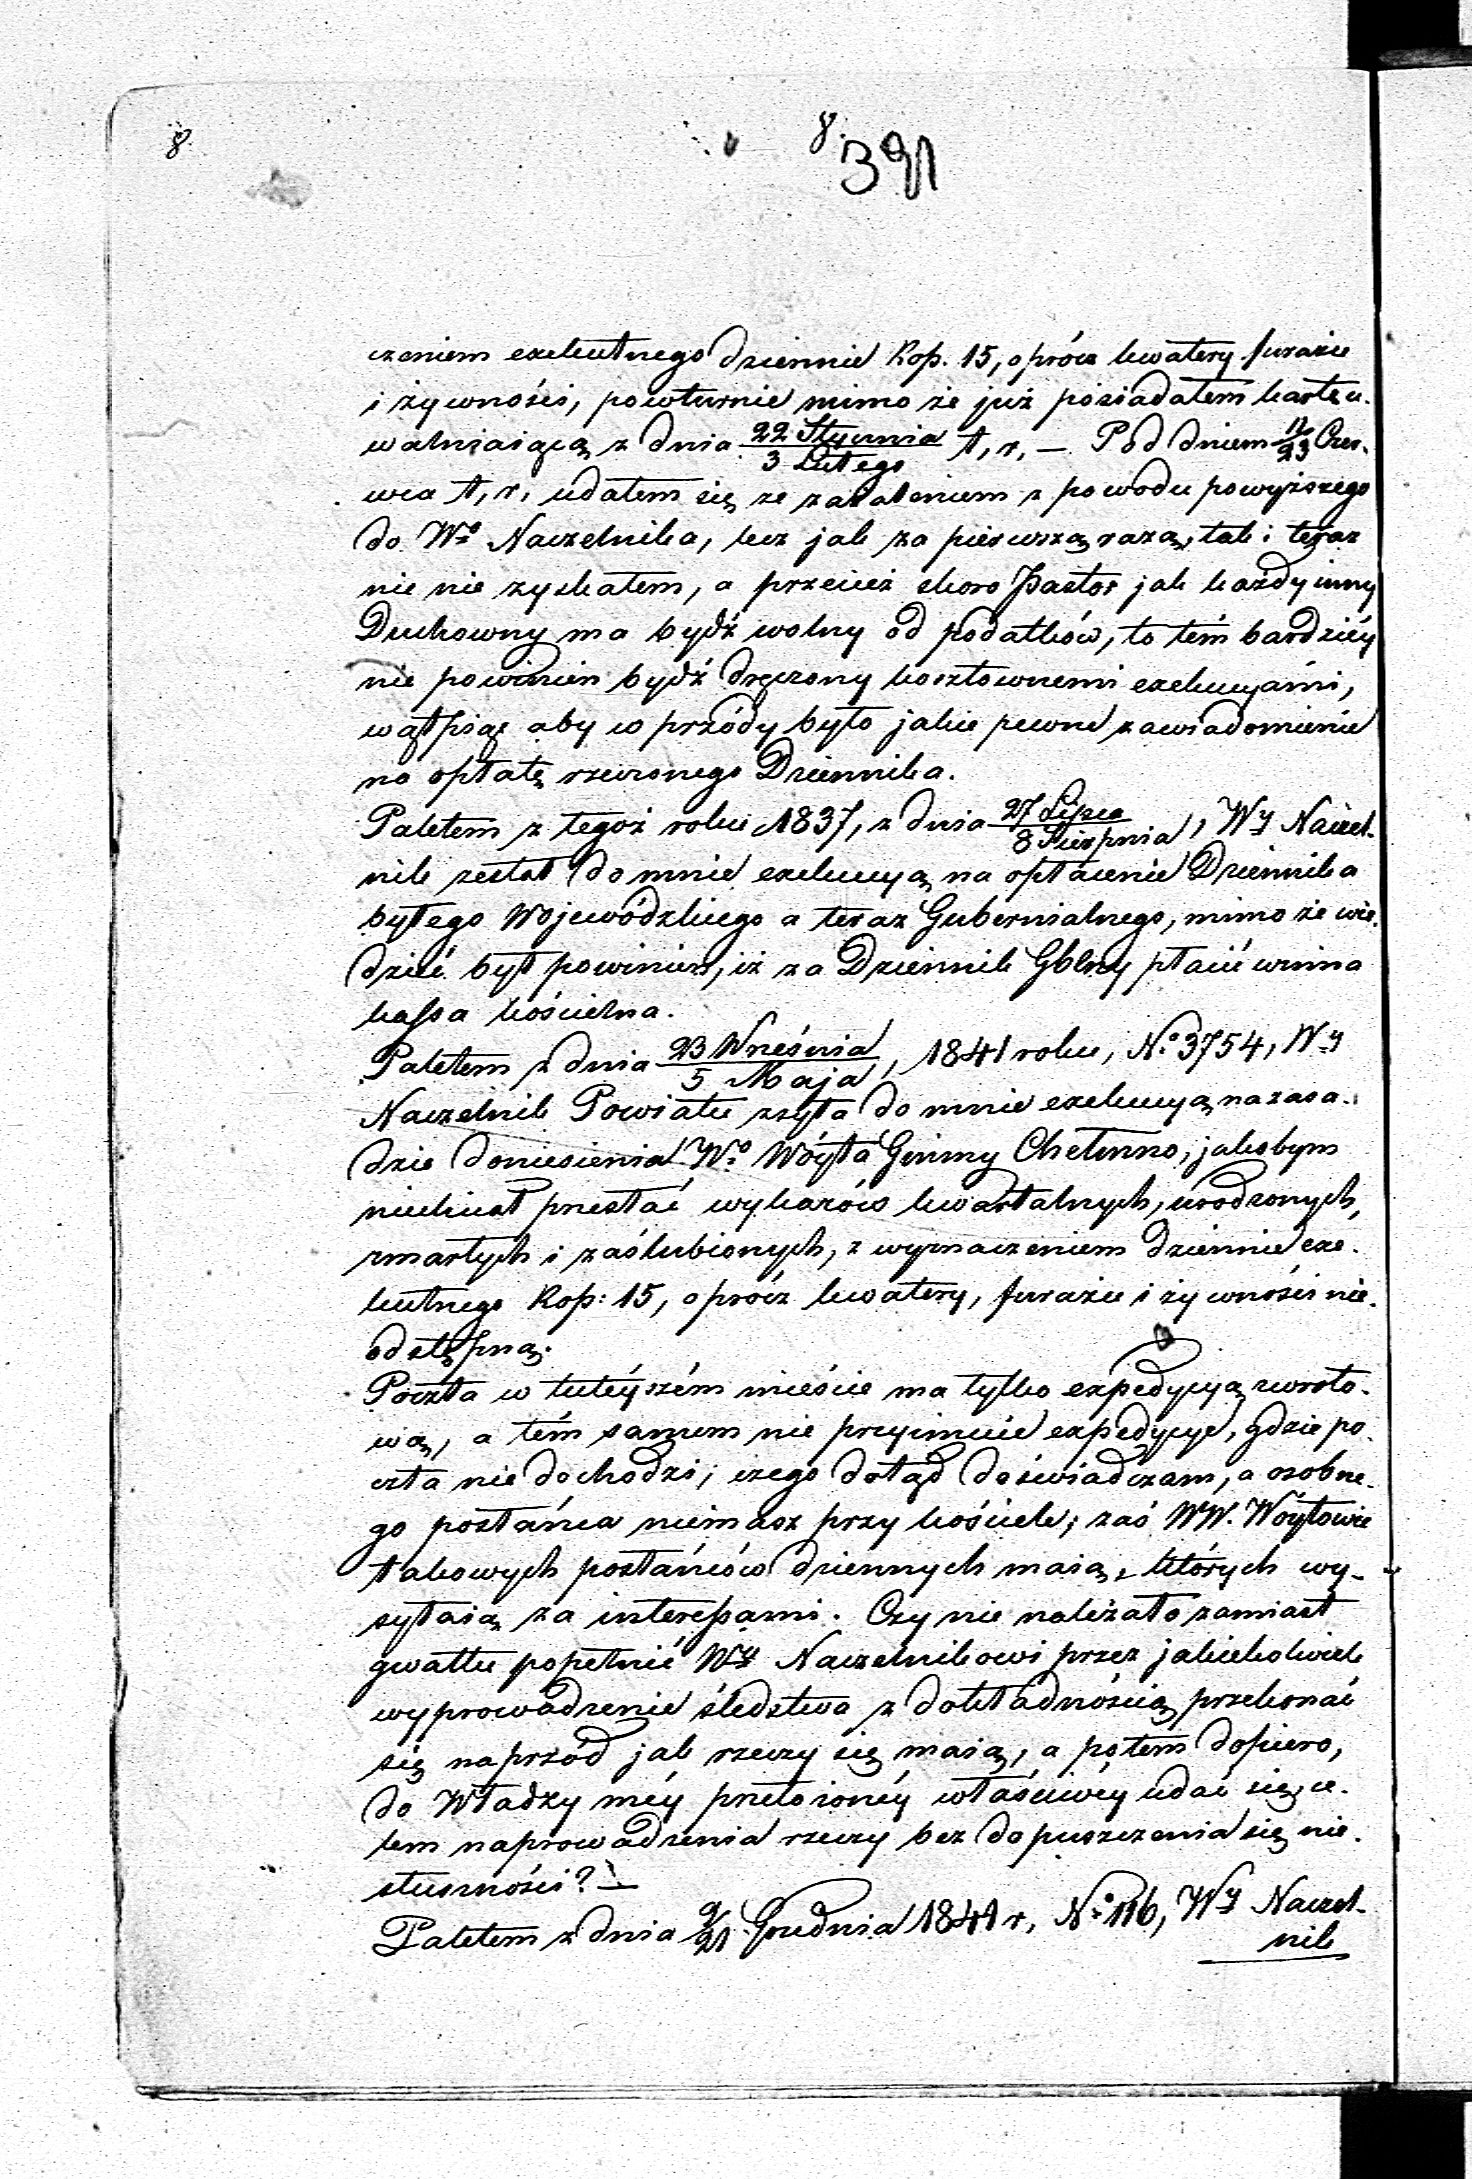 8
8.
391
czeniem exekutnego dziennie Kop. 15, oprócz kwatery furażu
i żywności, powturnie mimo że już posiadałem kartę u-
walniaiącą z dnia 22 Stycznia / 3 Lutego t. r. — Pod dniem 11/23 Czer-
wca t. r. udałem się ze zażaleniem z powodu powyższego
do Wo Naczelnika, lecz jak za pierwszą razą, tak i teraz
nic nie zyskałem, a przecież skoro Pastor jak każdy inny
Duchowny ma bydź wolny od podatków, to tém bardziéy
nie powinien bydź dręczony kosztownemi exekucyami,
wątpię aby w przódy było jakie pewne zawiadomienie
na opłatę rzeczonego Dziennika.
Paletem z tegoż roku 1837, z dnia 27 Lipca / 8 Sierpnia, Wy Naczel-
nik zesłał do mnie exekucyą na opłacenie Dziennika
byłego Wojewódzkiego a teraz Gubernialnego, mimo że wie-
dzieć był powinien, iż za Dziennik Gblny płacić winna
kassa kościelna.
Paletem z dnia 23 Września / 5 Maja, 1841 roku, No 3754, Wy
Naczelnik Powiatu zsyła do mnie exekucyą na zasa-
dzie doniesienia Wo Wóyta Gminy Chełmno, jakobym
niechciał przesłać wykazów kwartalnych, urodzonych,
zmarłych i zaślubionych, z wyznaczeniem dziennie exe-
kutnego Kop: 15, oprócz kwatery, furażu i żywności nie-
odstępną.
Poczta w tutéyszém mieście ma tylko expedycyą zwroto-
wą, a tém samem nie przyimuie expedycye, gdzie po-
czta nie dochodzi, czego dotąd doświadczam, a osobne-
go posłańca niemasz przy kościele; zaś WW. Wóytowie
takowych posłańców dziennych maią, których wy-
syłaią za interessami. Czy nie należało zamiast
gwałtu popełnić Wy Naczelnikowi przez jakiekolwiek
wyprowadzenie śledztwa z dokładnością przekonać
się naprzód jak rzeczy się maią, a potem dopiero,
do Władzy méy przełożonéy właściwéy udać się ce-
lem naprowadzenia rzeczy bez dopuszczenia się nie-
słuszności? —
Paletem z dnia 9/21 Grudnia 1841 r. No 116, Wy Naczel-
nik